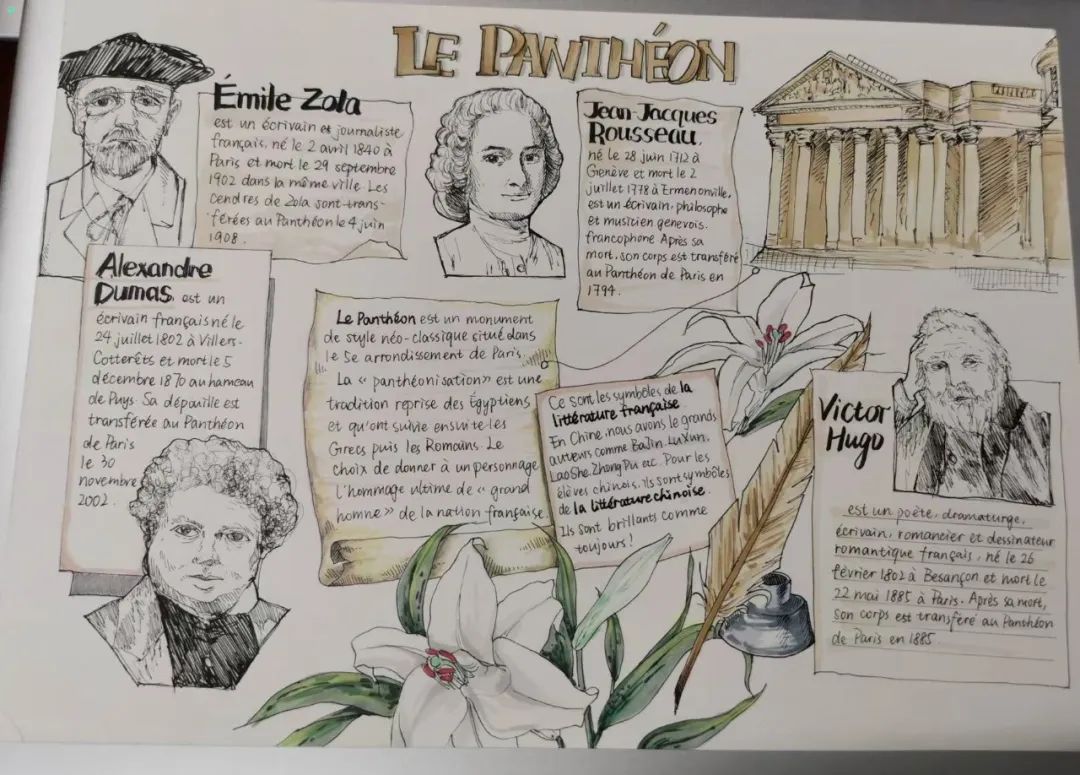 LE PANTHÉON
Émile Zola
est un écrivain et journaliste
français, né le 2 avril 1840 à
Paris et mort le 29 septembre
1902 dans la même ville. Les
cendres de Zola sont trans-
férées au Panthéon le 4 juin
1908.
Jean-Jacques
Rousseau,
né le 28 juin 1712 à
Genève et mort le 2
juillet 1778 à Ermenonville,
est un écrivain, philosophe
et musicien genevois.
francophone Après sa
mort, son corps est transféré
au Panthéon de Paris en
1794.
Alexandre
Dumas, est un
écrivain français né le
24 juillet 1802 à Villers-
Cotterêts et mort le 5
décembre 1870 au hameau
de Puys. Sa dépouille est
transférée au Panthéon
de Paris
le 30
novembre
2002.
Le Panthéon est un monument
de style néo-classique situé dans
le 5e arrondissement de Paris.
La « panthéonisation» est une
tradition reprise des Égyptiens
et qu'ont suivie ensuite les
Grecs puis les Romains. Le
choix de donner à un personnage
l'hommage ultime de « grand
homne » de la nation française
Ce sont les symboles de la
littérature française
En Chine, nous avons le grands
auteurs comme BaJin. LuXun.
LaoShe. ZhongPu etc. Pour les
élèves chinois, ils sont symboles
de la littérature chinoise.
Ils sont brillants comme
toujours!
Victor
Hugo
est un poète, dramaturge,
écrivain, romancier et dessinateur
romantique français, né le 26
février 1802 à Besançon et mort le
22 mai 1885 à Paris. Après sa mort,
son corps est transféré au Panthéon
de Paris en 1885